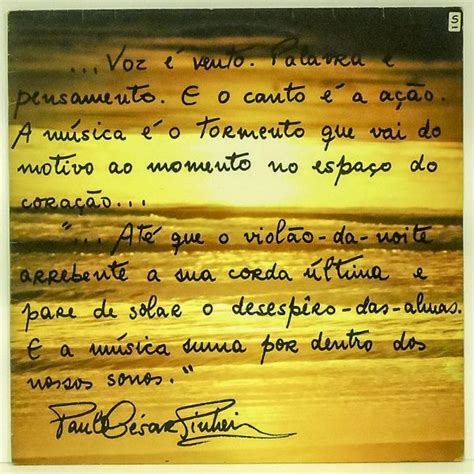 S
... Voz é vento. Palavra é
pensamento. E o canto é a ação.
A música é o tormento que vai do
motivo ao momento no espaço do
coração...
"... Até que o violão-da-noite
arrebente a sua corda última e
pare de solar o desespêro-das-almas.
E a música suma por dentro dos
nossos sonos."
Paulo César Pinheiro